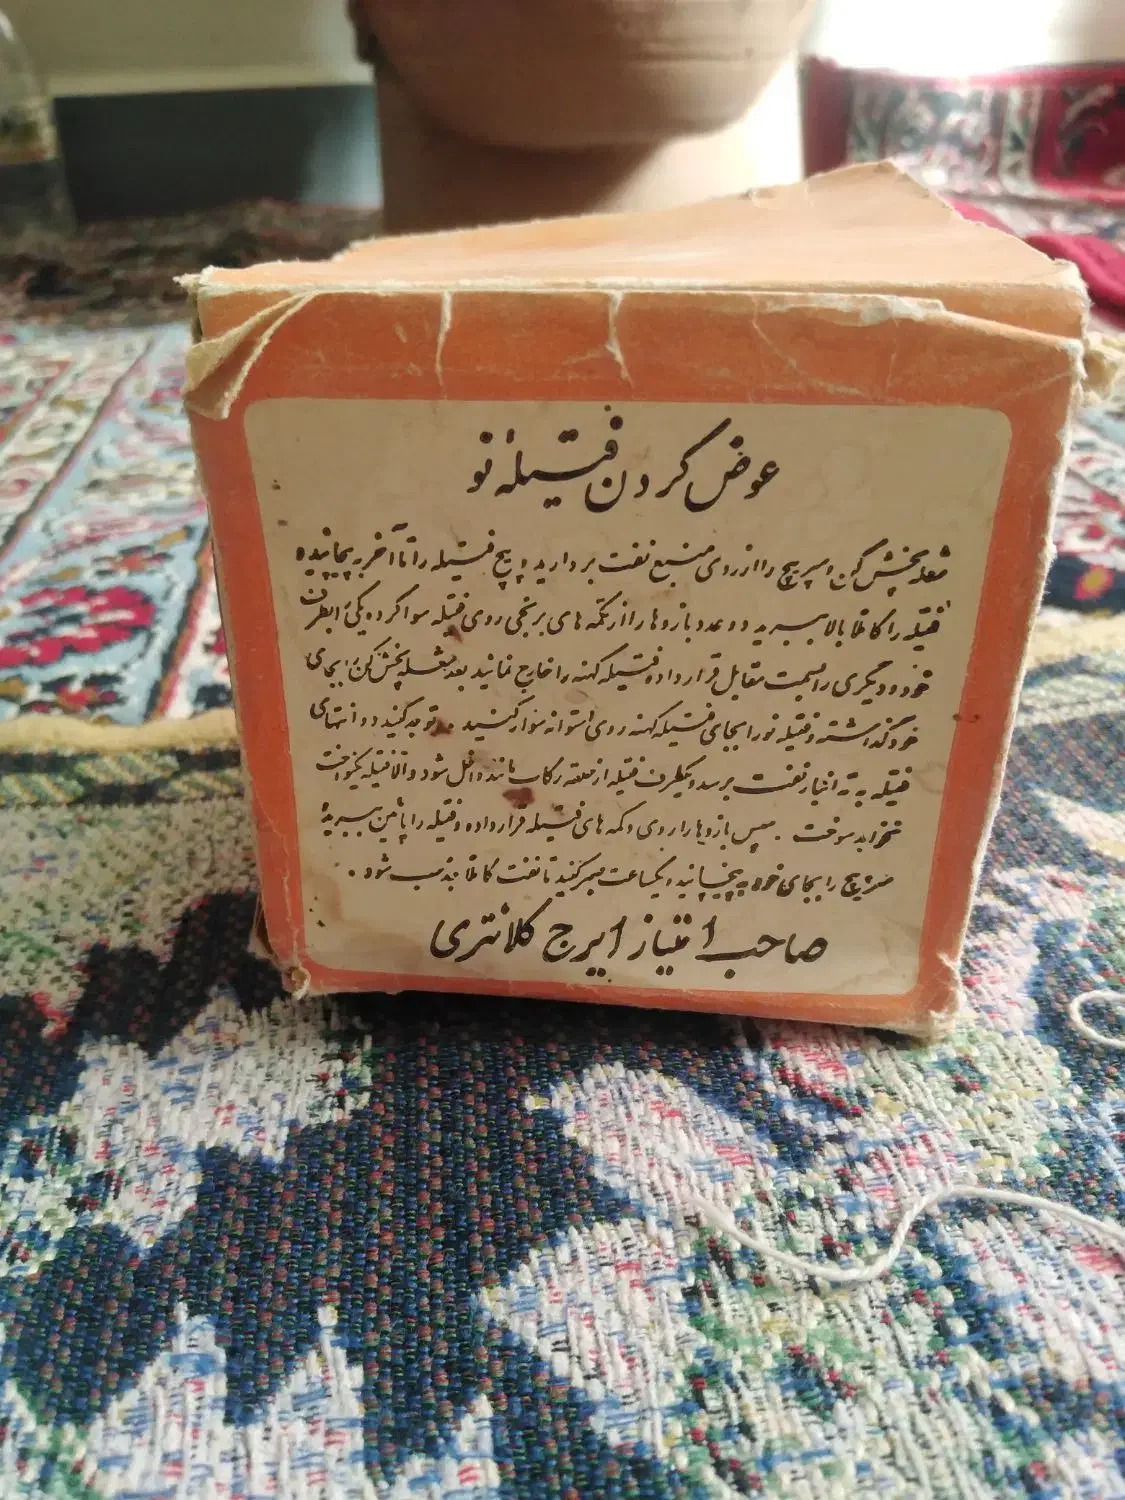 عوض کردن فتیلهٔ نو
شعله پخش کن و سرپیچ را از روی منبع نفت بردارید و پیچ فتیله را تا آخر به پیچانیده
فتیله را کاملا بالا ببرید و دو عدد بازوها را از تکمه های برنجی روی فتیله سوا کرده یکی را بطرف
خود و دیگری را بسمت مقابل قرار داده فتیله کهنه را خارج نمائید بعد شعله پخش کن را بجای
خود گذاشته و فتیله نو را بجای فتیله کهنه روی استوانه سوار کنید . توجه کنید دو انتهای
فتیله به ته انبار نفت برسد و یکطرف فتیله از حلقه رکاب مانند داخل شود والا فتیله یکنواخت
نخواهد سوخت . سپس بازوها را روی دکمه های فتیله قرار داده و فتیله را پائین ببرید
سرپیچ را بجای خود به پیچانید و یکساعت صبر کنید تا نفت کاملا جذب شود .
صاحب امتیاز ایرج کلانتری